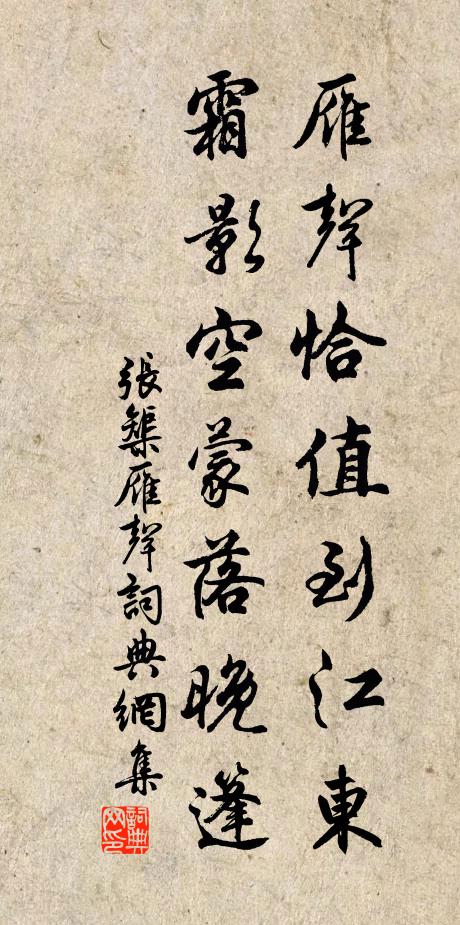 雁聲恰值到江東
霜影空蒙落晚篷
張榘雁聲詞典網集
詞典网印